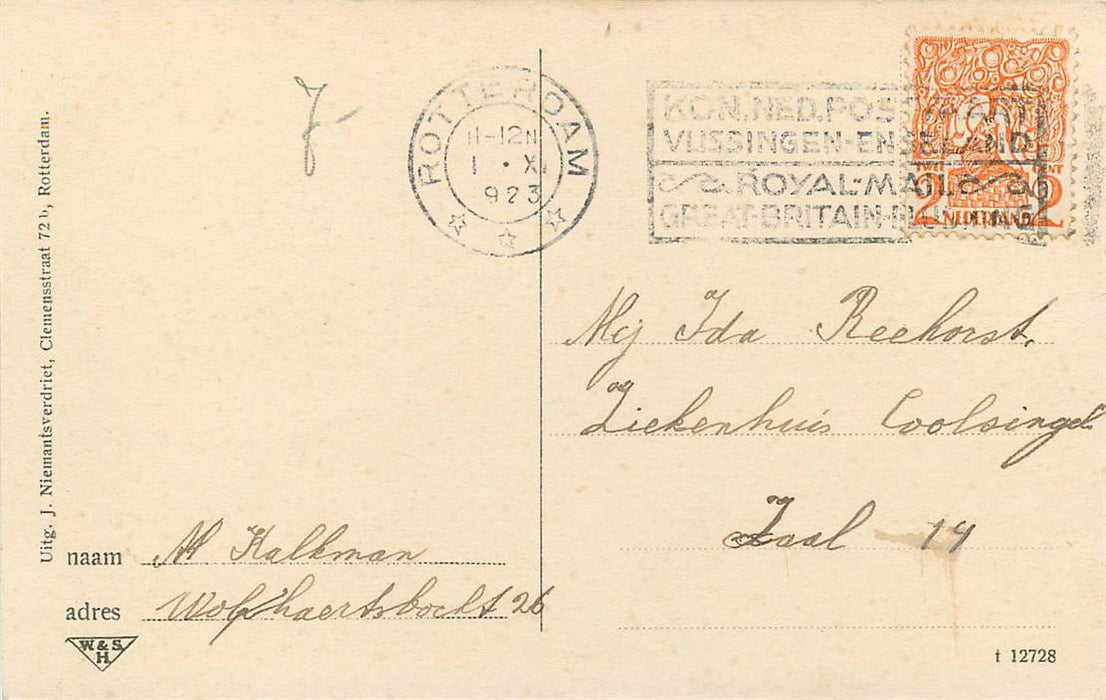 Uitg. J. Niemantsverdriet, Clemensstraat 72 b, Rotterdam.
7
ROTTERDAM
11-12N
1 • XI
923
KON. NED. POSTVAART
VLISSINGEN-ENGELAND
ROYAL-MAIL
GREAT-BRITAIN-FLUSHING
CENT
2 2
NEDERLAND
Mej Ida Reehorst.
Ziekenhuis Coolsingel
Zaal 14
naam M Kalkman
adres Wolphaertsbocht 26
W & S
H
t 12728